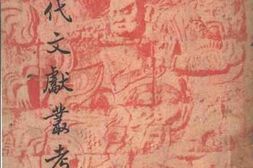 代文獻叢考